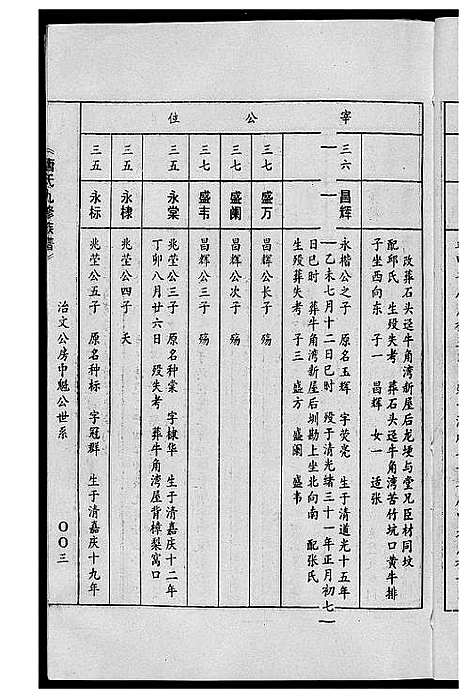 宰公位
改葬石头逕牛角湾新屋后龙埂与堂兄臣材同坟
配邱氏 生殁失考 葬石头逕牛角湾苦竹坑口黄牛排
子坐西向东 子一 昌辉 女一 适张
三六 昌辉 永楷公之子 原名玉辉 字荧亮 生于清道光十五年
乙未七月十二日巳时 殁于清光绪三十一年正月初七
日巳时 葬牛角湾新屋后圳勘上坐北向南 配张氏
生殁葬失考 子三 盛方 盛阑 盛韦
三七 盛万 昌辉公长子 殇
三七 盛阑 昌辉公次子 殇
三七 盛韦 昌辉公三子 殇
三五 永棠 兆莹公三子 原名种棠 字棣华 生于清嘉庆十二年
丁卯八月廿六日 殁失考 葬牛角湾屋背樟梨窝口
三五 永棣 兆莹公四子 夭
三五 永标 兆莹公五子 原名种标 字冠群 生于清嘉庆十九年
氏九修族谱
治文公房中魁公世系
〇〇三